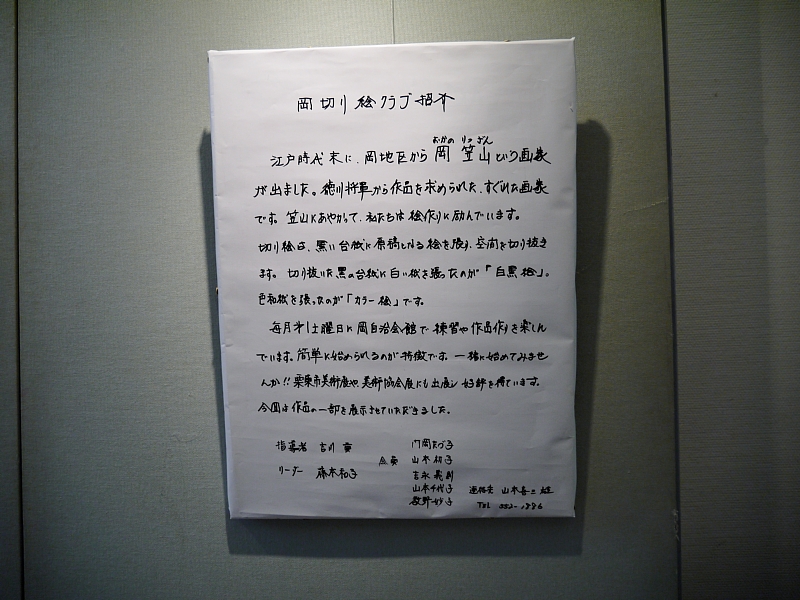 岡切り絵クラブ紹介
江戸時代末に、岡地区から岡笠山という画家
おかの りつざん
が出ました。徳川将軍から作品を求められた、すぐれた画家
です。笠山にあやかって、私たちは絵作りに励んでいます。
切り絵は、黒い台紙に原稿となる絵を張り、空間を切り抜き
ます。切り抜いた黒の台紙に白い紙を張ったのが「白黒絵」。
色和紙を張ったのが「カラー絵」です。
毎月第1土曜日に岡自治会館で練習や作品作りを楽しん
でいます。簡単に始められるのが特徴です。一緒に始めてみませ
んか!!栗東市美術展や美術協会展にも出展し好評を得ています。
今回は作品の一部を展示させていただきました。
指導者 吉川 實
リーダー 藤本和子
会員
門岡たづ子
山本初子
吉永
山本千代子
牧野妙子
連絡先 山本喜三雄
TEL 552-1886